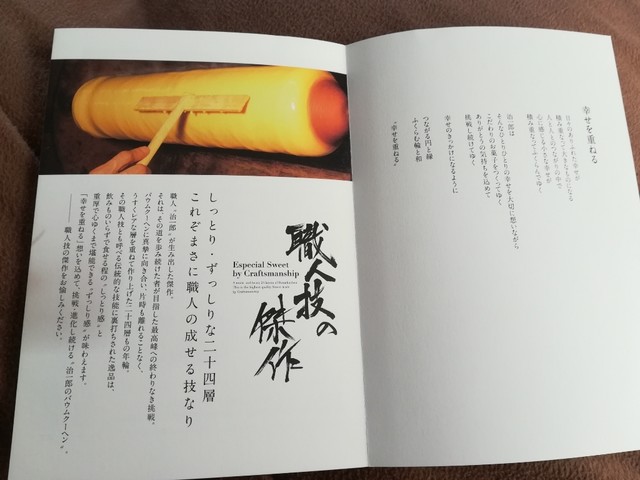 幸せを重ねる
人と人とのつながりの中で
心に感じる小さな幸せが
積み重なってふくらんでゆく
治一郎は
そんなひとりひとりの幸せを大切に想いながら
こだわりのお菓子をつくってゆく
ありがとうの気持ちを込めて
挑戦し続けてゆく
幸せのきっかけになるように
つながる円と縁
ふくらむ輪と和
“幸せを重ねる”
職人技の
傑作
Especial Sweet
by Craftsmanship
しっとり・ずっしりな二十四層
これぞまさに職人の成せる技なり
職人、治一郎が生み出した傑作。
それは、その道を歩み続けた者が目指した最高峰への終わりなき挑戦。
バウムクーヘンに真摯に向き合い、片時も離れることなく、
うすくレアな層を重ねて作り上げた二十四層もの年輪。
その職人技とも呼べる伝統的な技能に裏打ちされた逸品は、
飲みものいらずで食せる程の“しっとり感”と
重厚で心ゆくまで堪能できる“ずっしり感”が味わえます。
「“幸せを重ねる”想いを込めて、挑戦・進化し続ける“治一郎のバウムクーヘン”。
――職人技の傑作をお愉しみください。